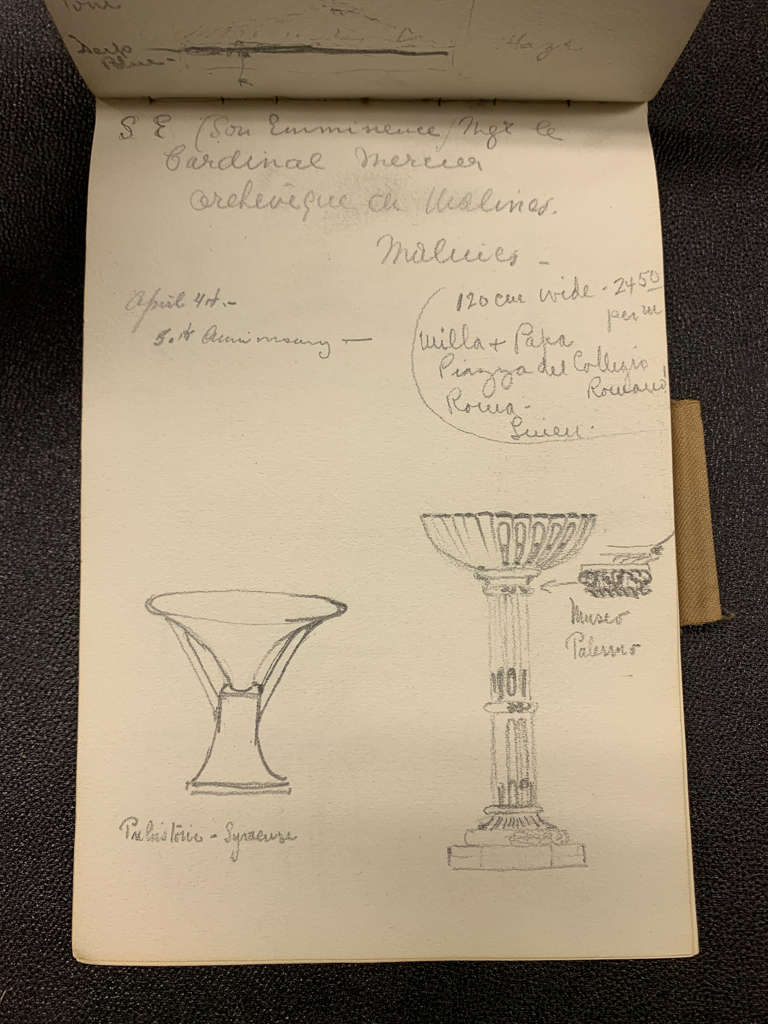 Tone
Deep
Blue -
Haze
S. E (Son Emminence) Mgr le
Cardinal Mercier
Archevêque de Malines.
Malines -
April 4th -
50th Anniversary -
120 cm wide - 24 50
per m
Milla + Papa
Piazza del Collegio
Romano,
Roma -
Linen.
Museo
Palermo
Prehistoric - Syracuse